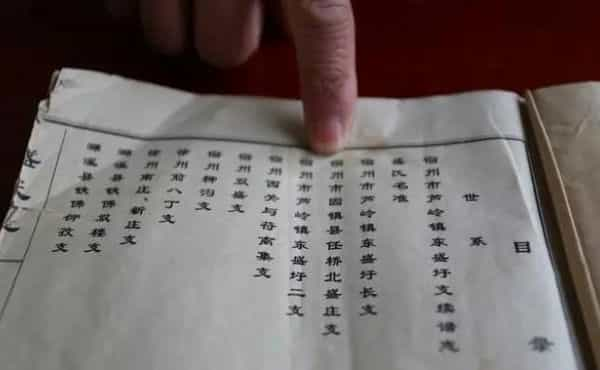 目录
世系
宿州市芦岭镇东盛圩支续谱志
盛氏名准
宿州市芦岭镇东盛圩长支
宿州市固镇县任桥北盛庄支
宿州市芦岭镇东盛圩二支
宿州西关与符南集支
宿州双盛支
宿州柳沟支
徐州前八丁支
徐州南庄、新庄支
濉溪县铁佛双楼支
濉溪县铁佛仰孜支